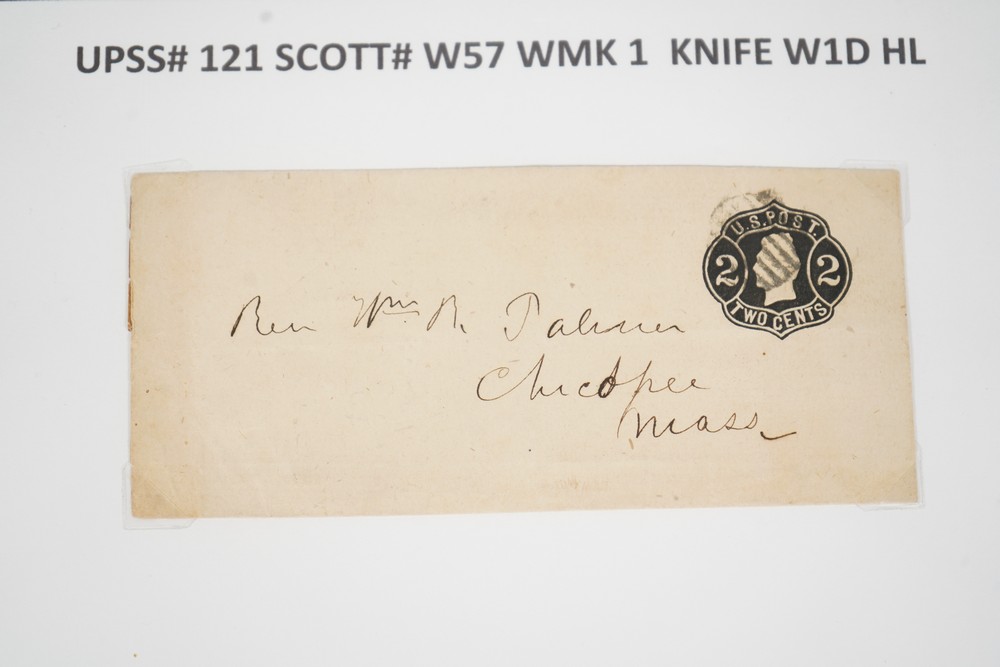 UPSS# 121 SCOTT# W57 WMK 1 KNIFE W1D HL
U.S. POST.
2 2
TWO CENTS
Rev Wm R. Palmer
Chicopee
Mass